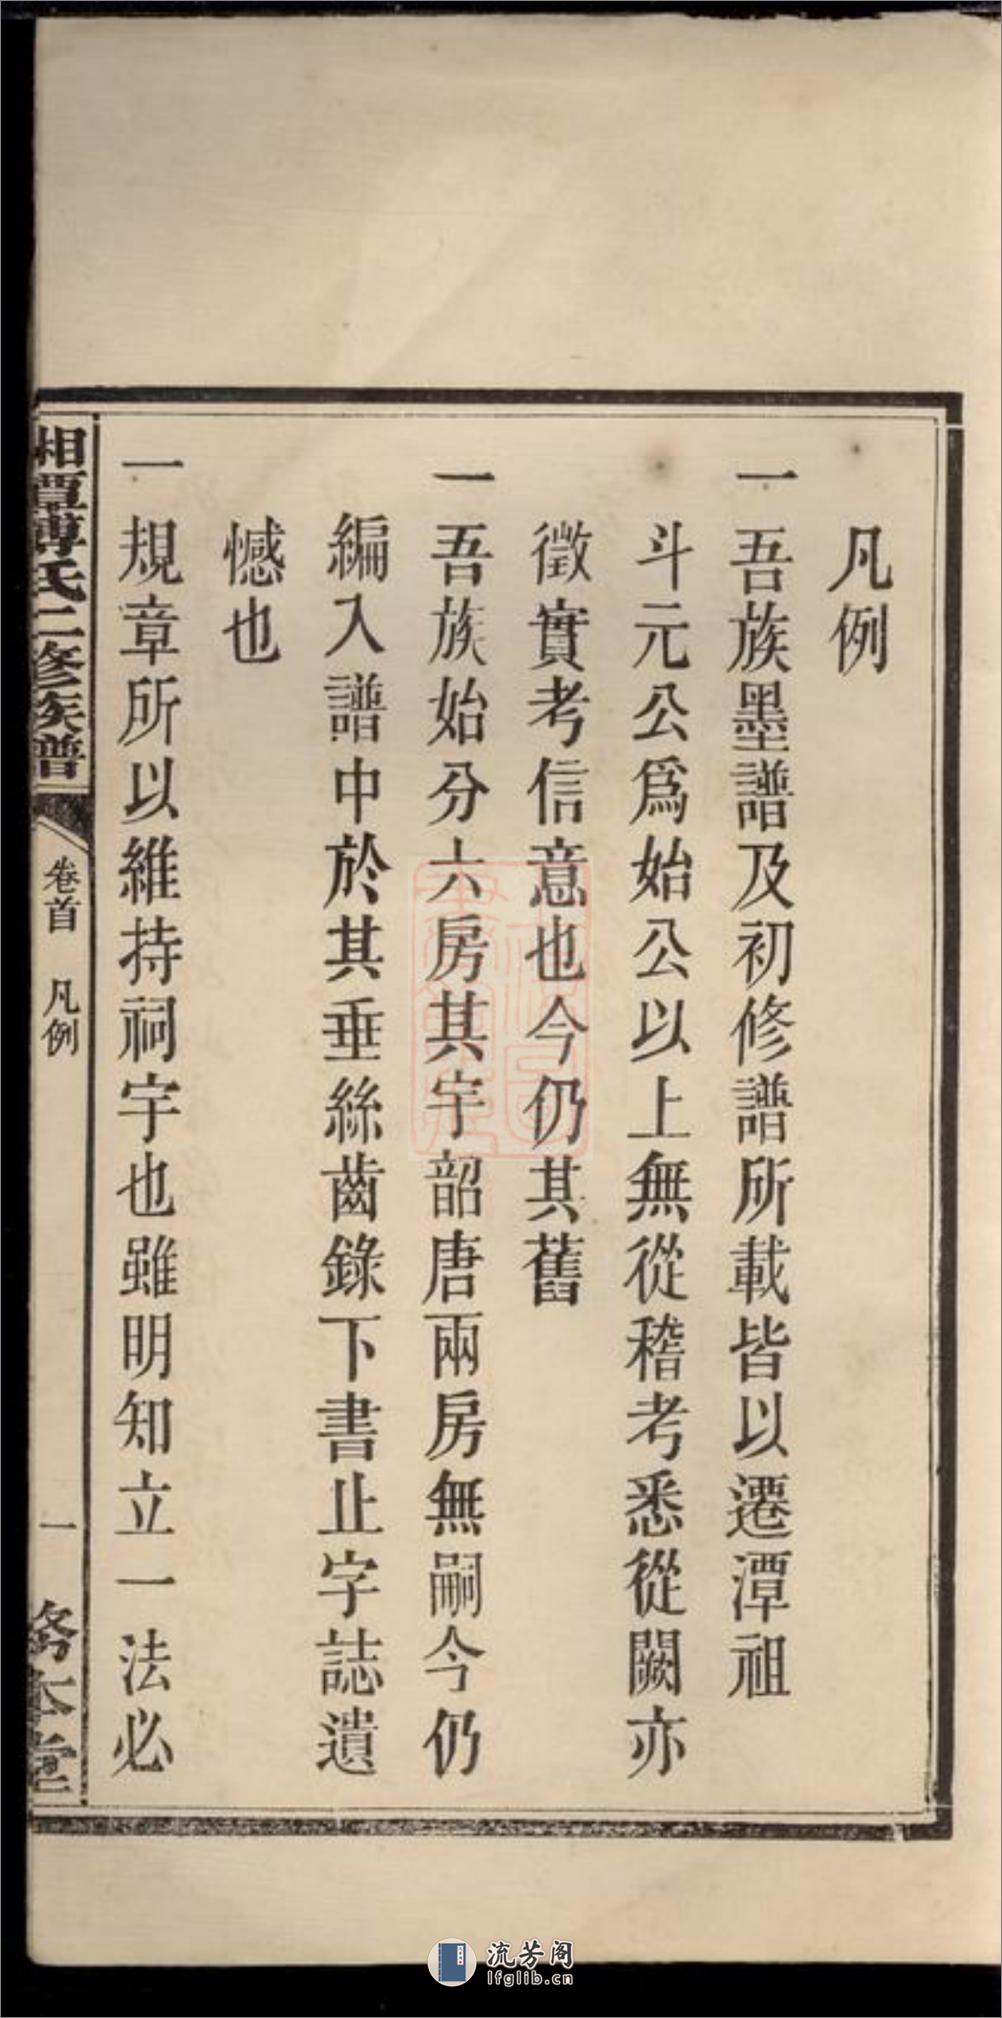 凡例
一吾族墨譜及初修譜所載皆以遷潭祖
斗元公爲始公以上無從稽考悉從闕亦
徵實考信意也今仍其舊
一吾族始分六房其宇韶唐兩房無嗣今仍
編入譜中於其垂絲齒錄下書止字誌遺
憾也
一規章所以維持祠宇也雖明知立一法必
湘潭傅氏二修族譜
卷首 凡例
一
務本堂
流芳阁
lfglib.cn